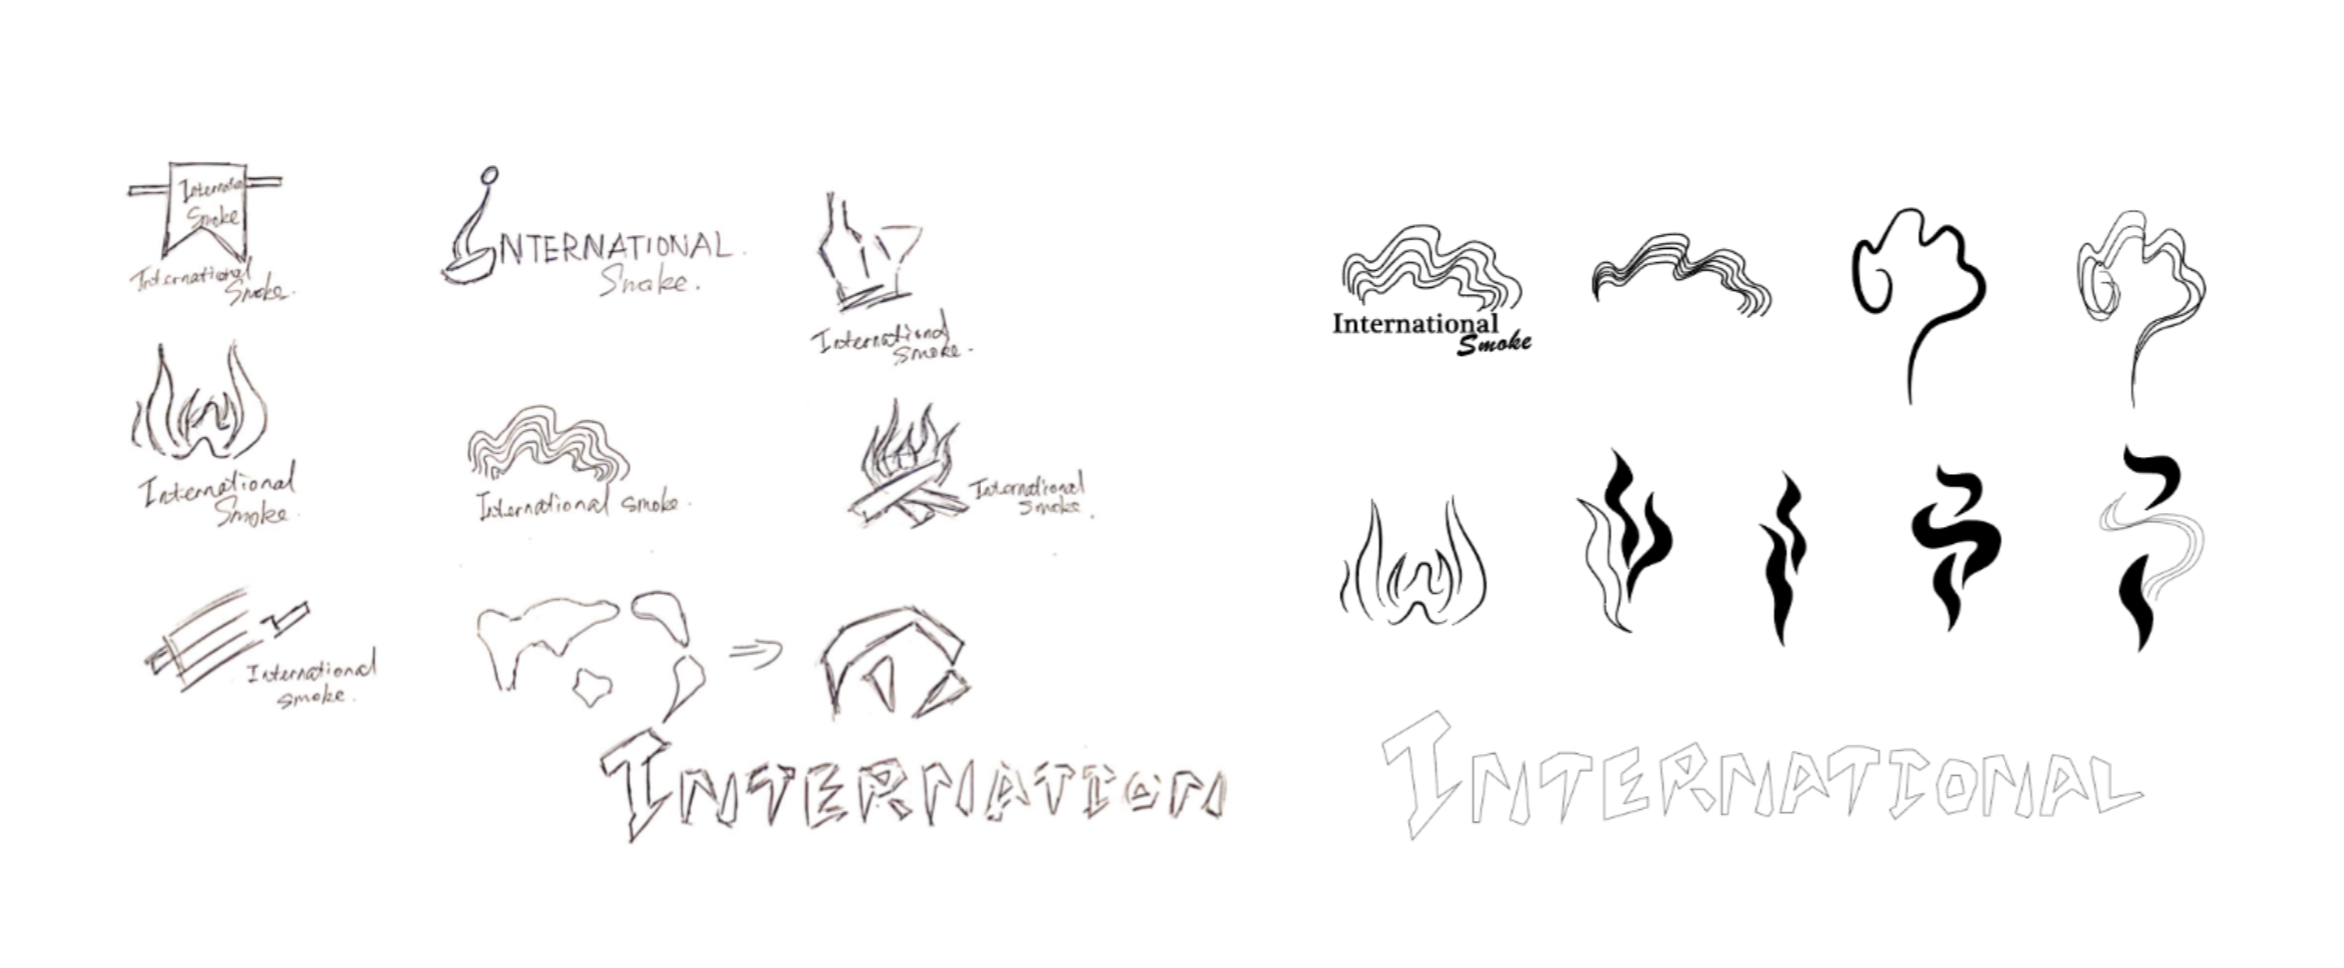 Internatio
Smoke
International
Smoke.
INTERNATIONAL.
Smoke.
International
Smoke.
International
Smoke.
International smoke.
International
Smoke.
International
smoke.
INTERNATION
International
Smoke
INTERNATIONAL